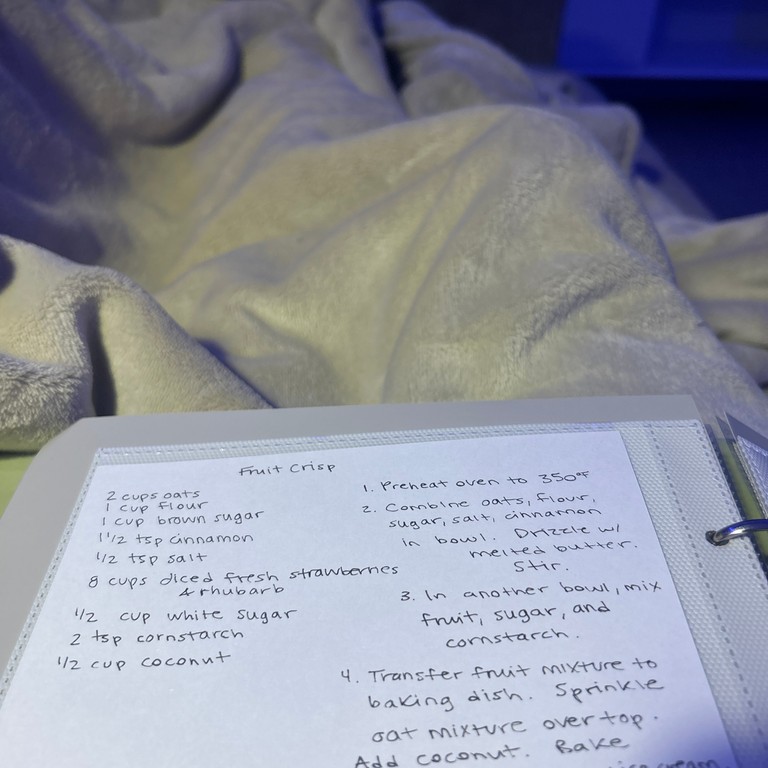 Fruit Crisp
2 cups oats
1 cup flour
1 cup brown sugar
1 1/2 tsp cinnamon
1/2 tsp salt
8 cups diced fresh strawberries
& rhubarb
1/2 cup white sugar
2 tsp cornstarch
1/2 cup coconut
1. Preheat oven to 350°F
2. Combine oats, flour,
sugar, salt, cinnamon
in bowl. Drizzle w/
melted butter.
Stir.
3. In another bowl, mix
fruit, sugar, and
cornstarch.
4. Transfer fruit mixture to
baking dish. Sprinkle
oat mixture over top.
Add coconut. Bake
ice cream